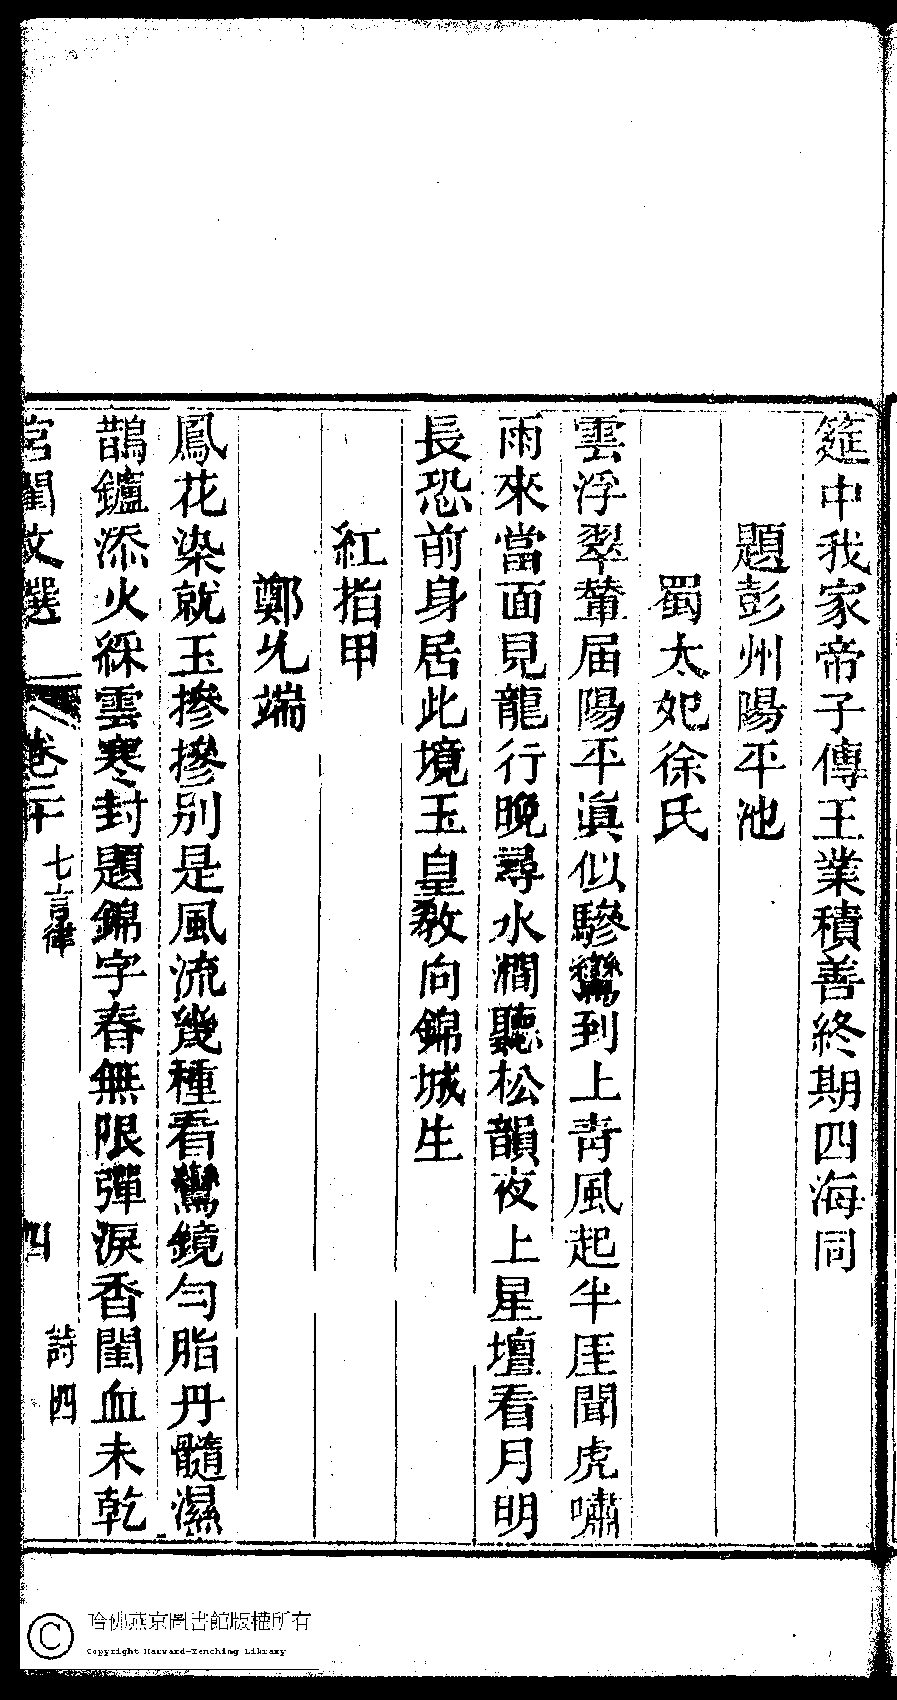 筵中我家帝子傳王業積善終期四海同
題彭州陽平池
蜀太妃徐氏
雲浮翠輦届陽平眞似驂鸞到上靑風起半厓聞虎嘯
雨來當面見龍行晚尋水澗聽松韻夜上星壇看月明
長恐前身居此境玉皇敎向錦城生
紅指甲
鄭允端
鳳花染就玉摻摻別是風流幾種看鸞鏡勻脂丹髓濕
鵲鑪添火綵雲寒封題錦字春無限彈淚香閨血未乾
宮閨文選 卷二十 七言律 四 詩四
哈佛燕京圖書館版權所有
Copyright Harvard-Yenching Library